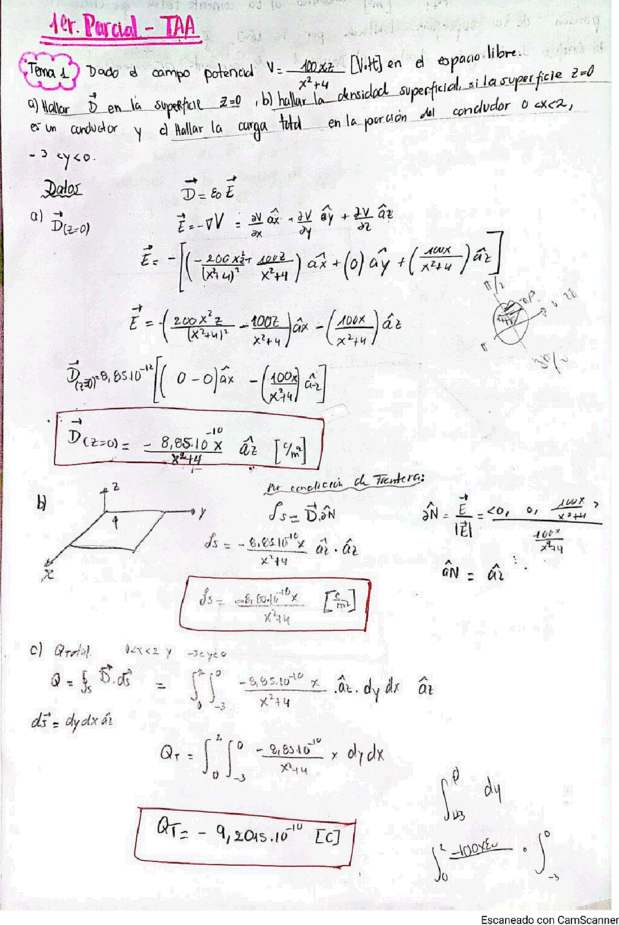 1er. Parcial - TAA
Tema 1 Dado el campo potencial V = 100xz / x²+4 [Volt] en el espacio libre.
a) Hallar D⃗ en la superficie z=0, b) hallar la densidad superficial, si la superficie z=0
es un conductor y c) Hallar la carga total en la porción del conductor 0<x<2,
-3<y<0.
Datos
D⃗ = ε0 E⃗
a) D⃗(z=0)
E⃗ = -∇V = ∂V/∂x âx + ∂V/∂y ây + ∂V/∂z âz
E⃗ = -[(-200x²z/(x²+4)² + 100z/x²+4) âx + (0) ây + (100x/x²+4) âz]
E⃗ = (200x²z/(x²+4)² - 100z/x²+4) âx - (100x/x²+4) âz
D⃗(z=0) = 8,85.10⁻¹² [(0-0) âx - (100x/x²+4) âz]
D⃗(z=0) = - 8,85.10⁻¹⁰ x / x²+4 âz [C/m²]
Por condición de Frontera:
b) z
y
x
ρs = D⃗.âN
ρs = - 8,85.10⁻¹⁰ x / x²+4 âz . âz
ρs = -8,85.10⁻¹⁰ x / x²+4 [C/m²]
âN = E⃗/|E⃗| = <0, 0, 100x/x²+4> / 100x/x²+4
âN = âz
c) QTotal 0<x<2 y -3<y<0
Q = ∫s D⃗.ds⃗ = ∫₀² ∫₋₃⁰ -8,85.10⁻¹⁰ x / x²+4 .âz. dy dx âz
ds⃗ = dy dx âz
QT = ∫₀² ∫₋₃⁰ -8,85.10⁻¹⁰ / x²+4 x dy dx
QT = - 9,2015.10⁻¹⁰ [C]
dy
Escaneado con CamScanner